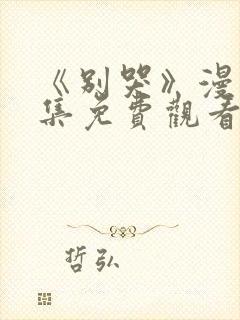 《别哭》漫
集免費觀看
哲弘